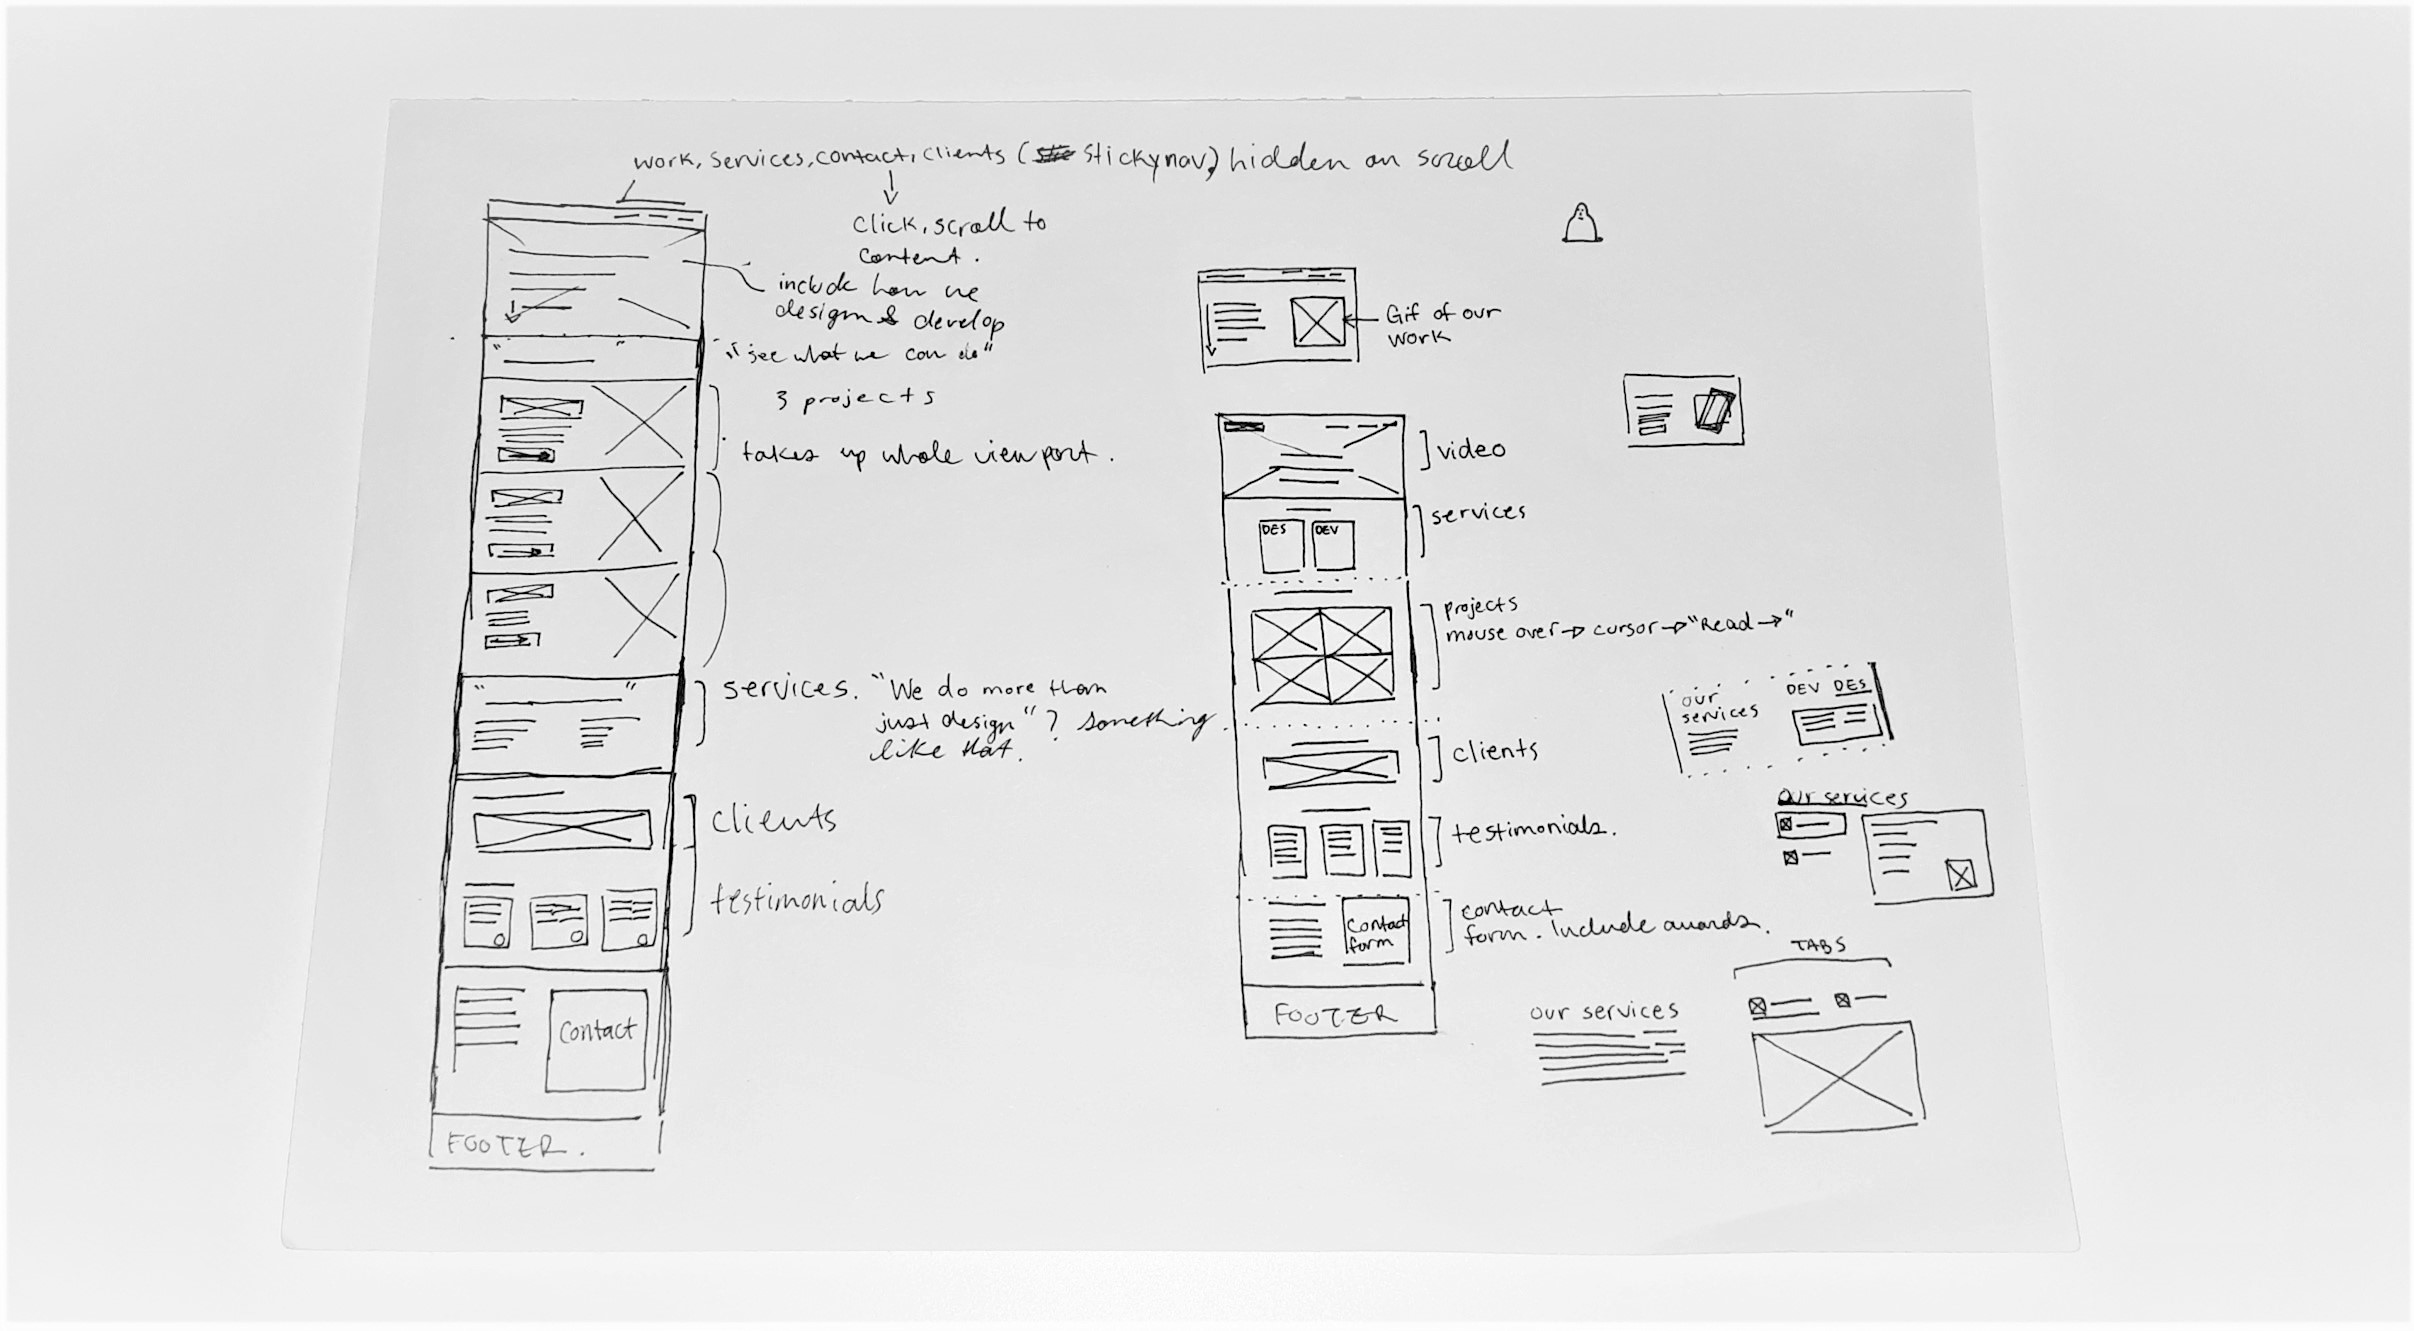 work, services, contact, clients (stickynav) hidden on scroll
click, scroll to
content.
include how we
design & develop
"see what we can do"
3 projects
takes up whole viewport.
services. "We do more than
just design"? something
like that.
clients
testimonials
contact
FOOTER.
Gif of our
work
video
DES DEV
services
projects
mouse over → cursor → "Read →"
clients
testimonials.
contact
form
contact
form. Include awards.
FOOTER
our
services
DEV DES
our services
TABS
our services